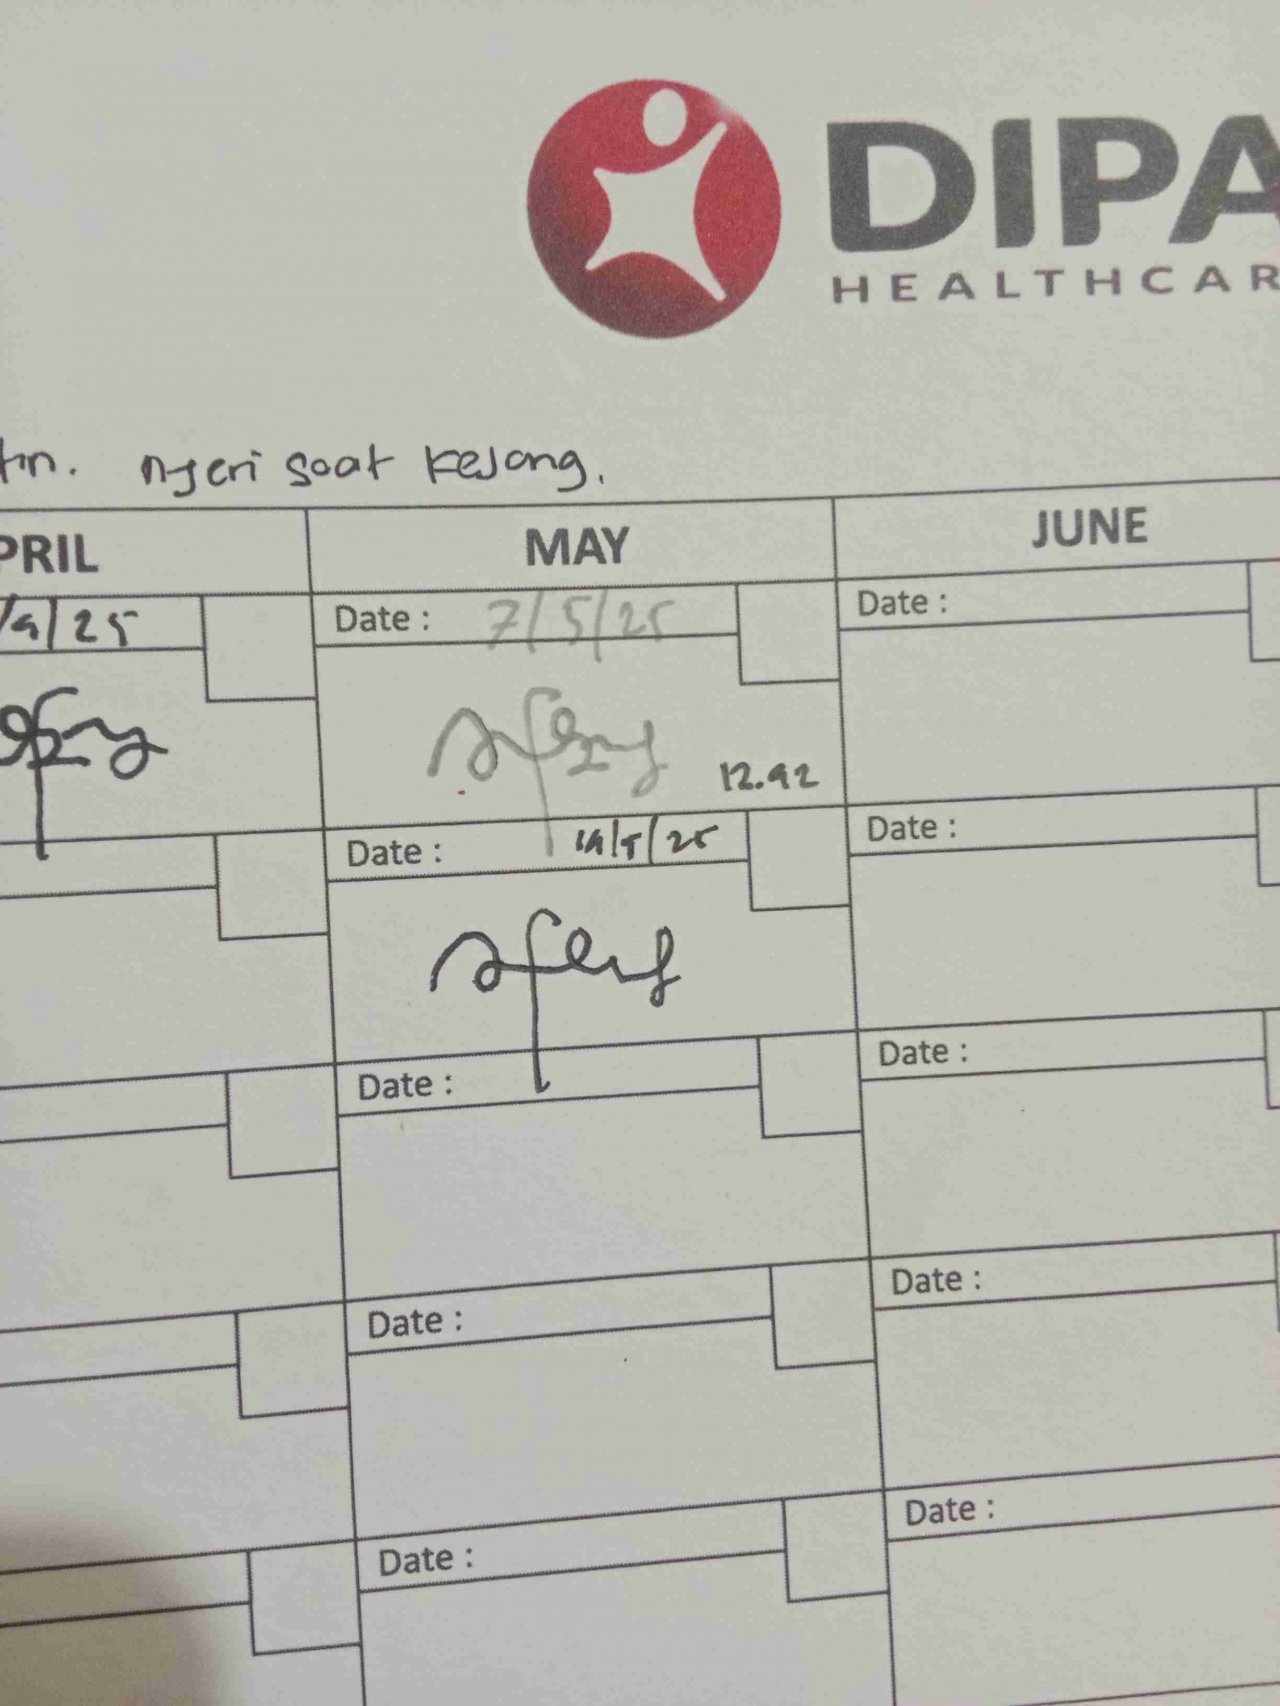 DIPA
HEALTHCAR
tin. nyeri saat kejang.
PRIL MAY JUNE
/4/25 Date : 7/5/25 Date :
12.42
Date : 14/5/25 Date :
Date : Date :
Date : Date :
Date : Date :